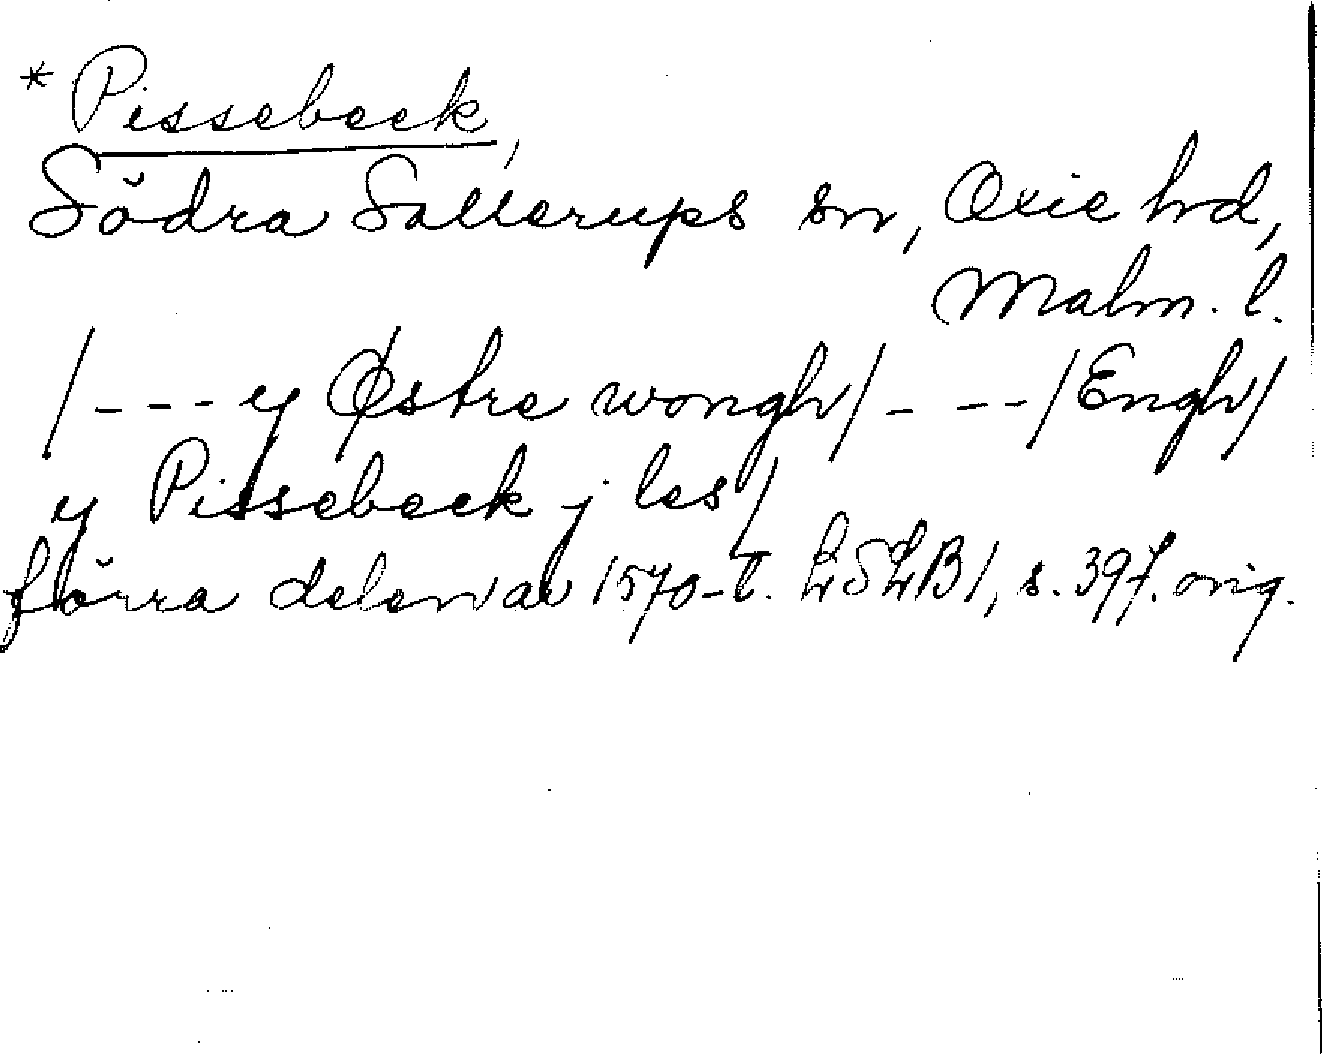 * Pissebeck,
Södra Sallerups sn, Oxie hd,
Malm. l.
/--- y Østre wongh/ - --/Engh/
y Pissebeck j les/
förra delen av 1570-t. LSLB1, s. 397. orig.